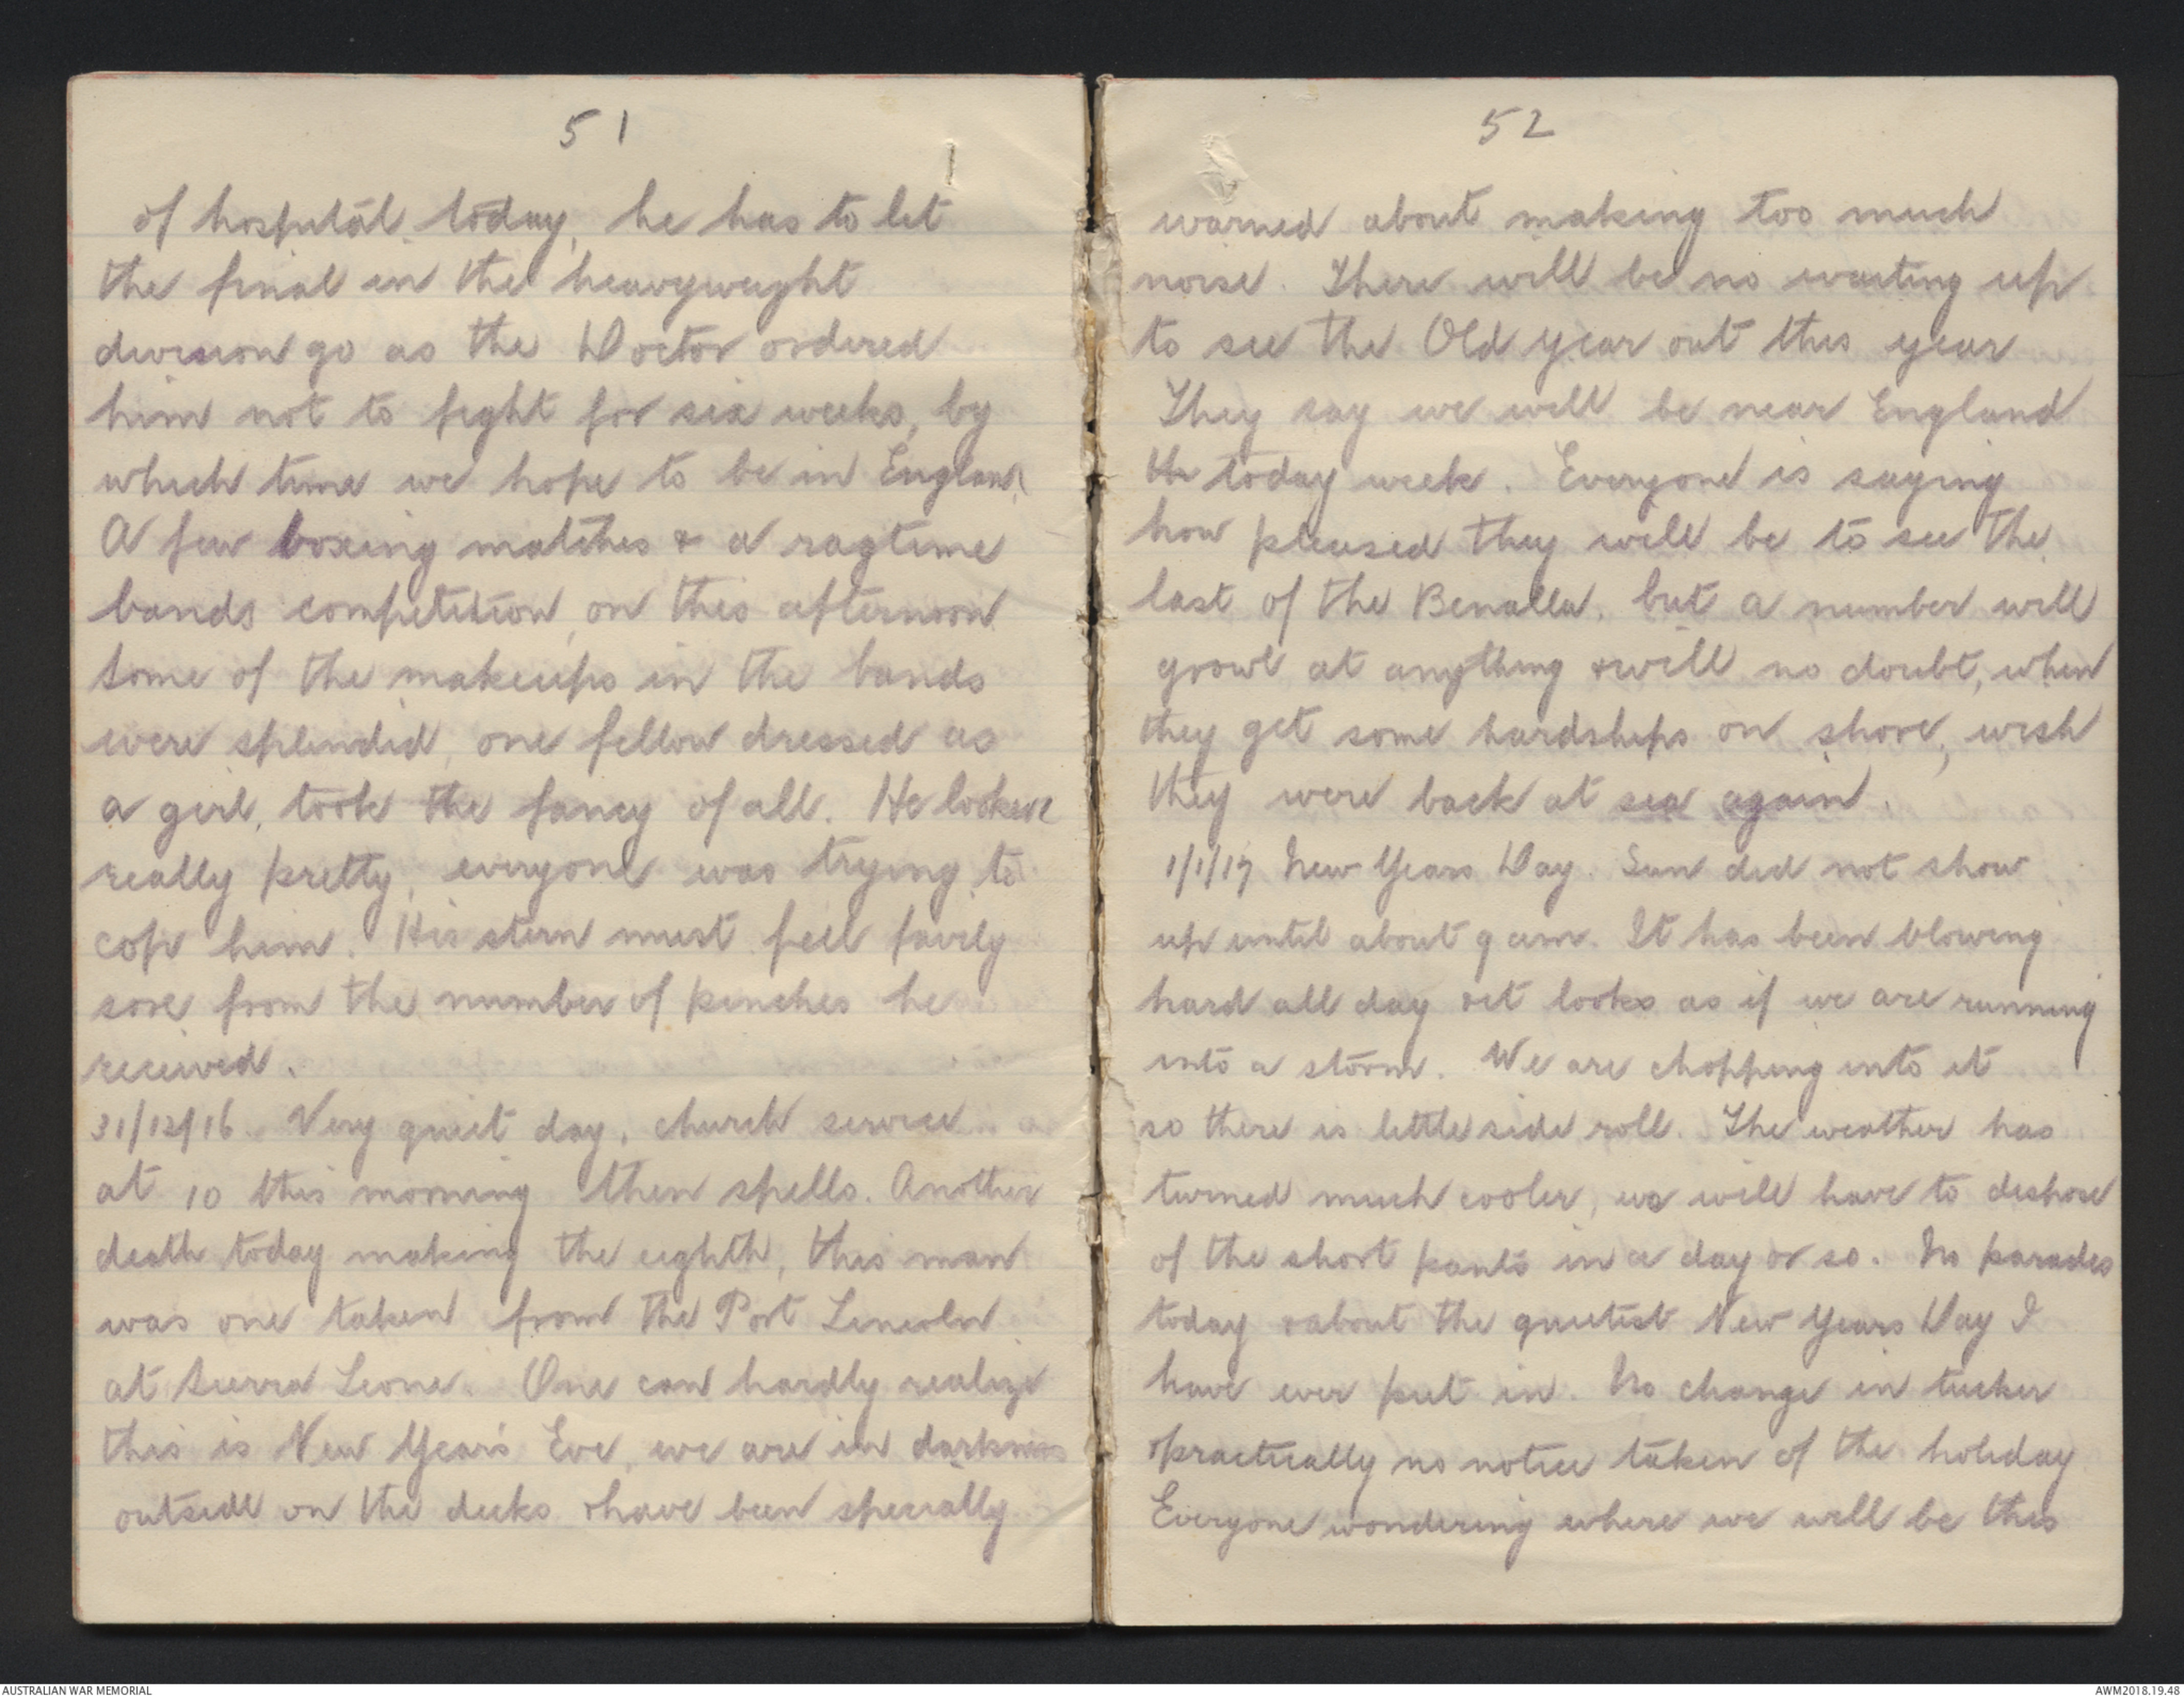 51
of hospital today, he has to let
the final in the heavyweight
division go as the Doctor ordered
him not to fight for six weeks, by
which time we hope to be in England
A few boxing matches & a ragtime
bands competition, on this afternoon
Some of the makeups in the bands
were splendid, one fellow dressed as
a girl, took the fancy of all. He looked
really pretty, everyone was trying to
cop him. His stern must feel fairly
sore from the number of pinches he
received.
31/12/16. Very quiet day, church service
at 10 this morning then spells. Another
death today making the eighth, this man
was one taken from the Port Lincoln
at Sierra Leone. One can hardly realize
this is New Year's Eve, we are in darkness
outside on the decks & have been specially
52
warned about making too much
noise. There will be no waiting up
to see the Old Year out this year
They say we will be near England
th today week. Everyone is saying
how pleased they will be to see the
last of the Benalla, but a number will
growl at anything & will no doubt, when
they get some hardships on shore, wish
they were back at sea again.
1/1/17 New Years Day. Sun did not show
up until about 9 am. It has been blowing
hard all day & it looks as if we are running
into a storm. We are chopping into it
so there is little side roll. The weather has
turned much cooler, we will have to dispose
of the short pants in a day or so. No parades
today & about the quietest New Years Day I
have ever put in. No change in tucker
& practically no notice taken of the holiday
Everyone wondering where we will be this
AUSTRALIAN WAR MEMORIAL
AWM2018.19.48